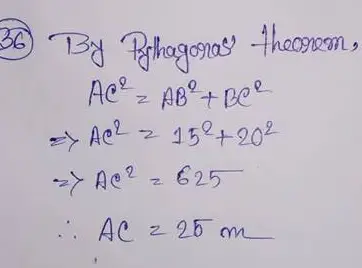 36 By Pythagoras' theorem,
AC² = AB² + BC²
=> AC² = 15² + 20²
=> AC² = 625
∴ AC = 25 m